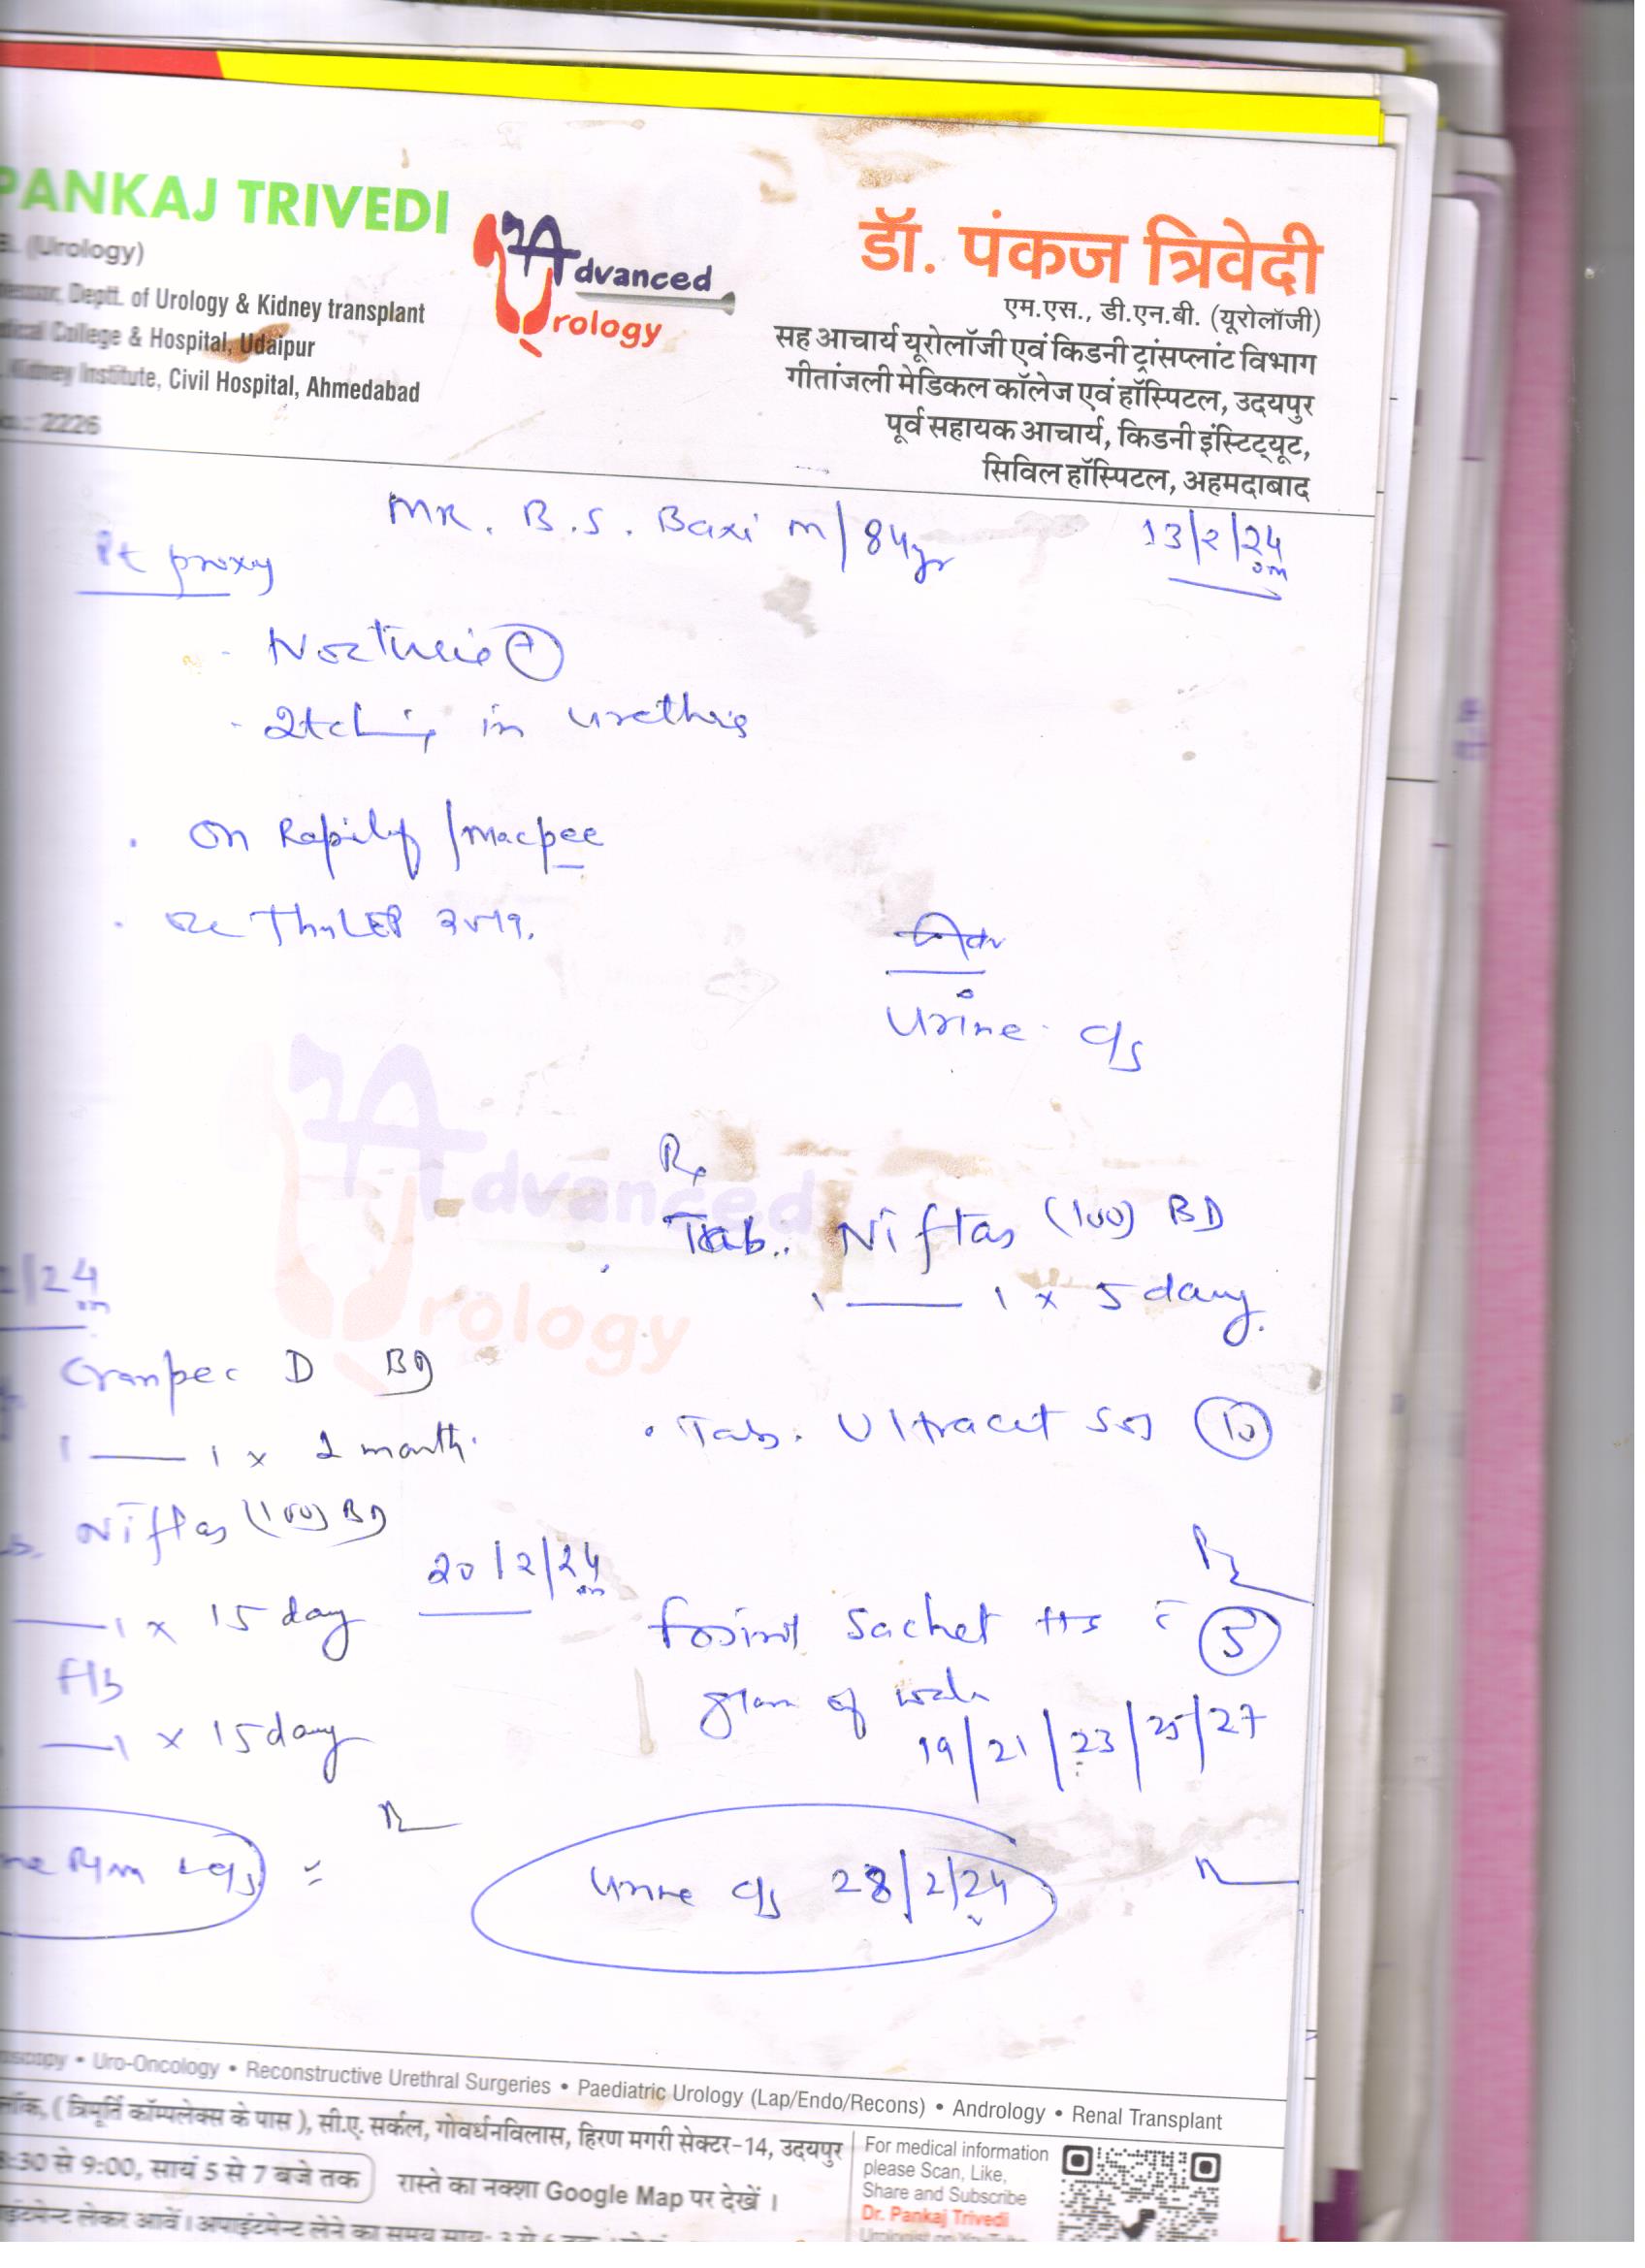 PANKAJ TRIVEDI
(Urology)
Deptt. of Urology & Kidney transplant
College & Hospital, Udaipur
Kidney Institute, Civil Hospital, Ahmedabad
2226
Advanced
Urology
डॉ. पंकज त्रिवेदी
एम.एस., डी.एन.बी. (यूरोलॉजी)
सह आचार्य यूरोलॉजी एवं किडनी ट्रांसप्लांट विभाग
गीतांजली मेडिकल कॉलेज एवं हॉस्पिटल, उदयपुर
पूर्व सहायक आचार्य, किडनी इंस्टिट्यूट,
सिविल हॉस्पिटल, अहमदाबाद
MR. B.S. Baxi m/84yr
13/2/24
Pt proxy
- Nocturia +
- Itching in urethra
. On /Macpee
. ThuLEP 2019.
Urine c/s
Rx
Tab. Niftas (100) BD
1 — 1 x 5 day.
• Tab. Ultracet SOS 10
2/24
Cranpec D BD
1 — 1 x 2 month.
Niftas (100) BD
— 1 x 15 day
— 1 x 15 day
20/2/24
sachet HS c 5
glass of water
19/21/23/25/27
R/M + c/s
Urine c/s 28/2/24
• Uro-Oncology • Reconstructive Urethral Surgeries • Paediatric Urology (Lap/Endo/Recons) • Andrology • Renal Transplant
( त्रिमूर्ति कॉम्पलेक्स के पास ), सी.ए. सर्कल, गोवर्धनविलास, हिरण मगरी सेक्टर-14, उदयपुर
8:30 से 9:00, सायं 5 से 7 बजे तक
रास्ते का नक्शा Google Map पर देखें ।
लेकर आवें । अपाइंटमेन्ट लेने का समय
For medical information
please Scan, Like,
Share and Subscribe
Dr. Pankaj Trivedi
Advanced
Urology